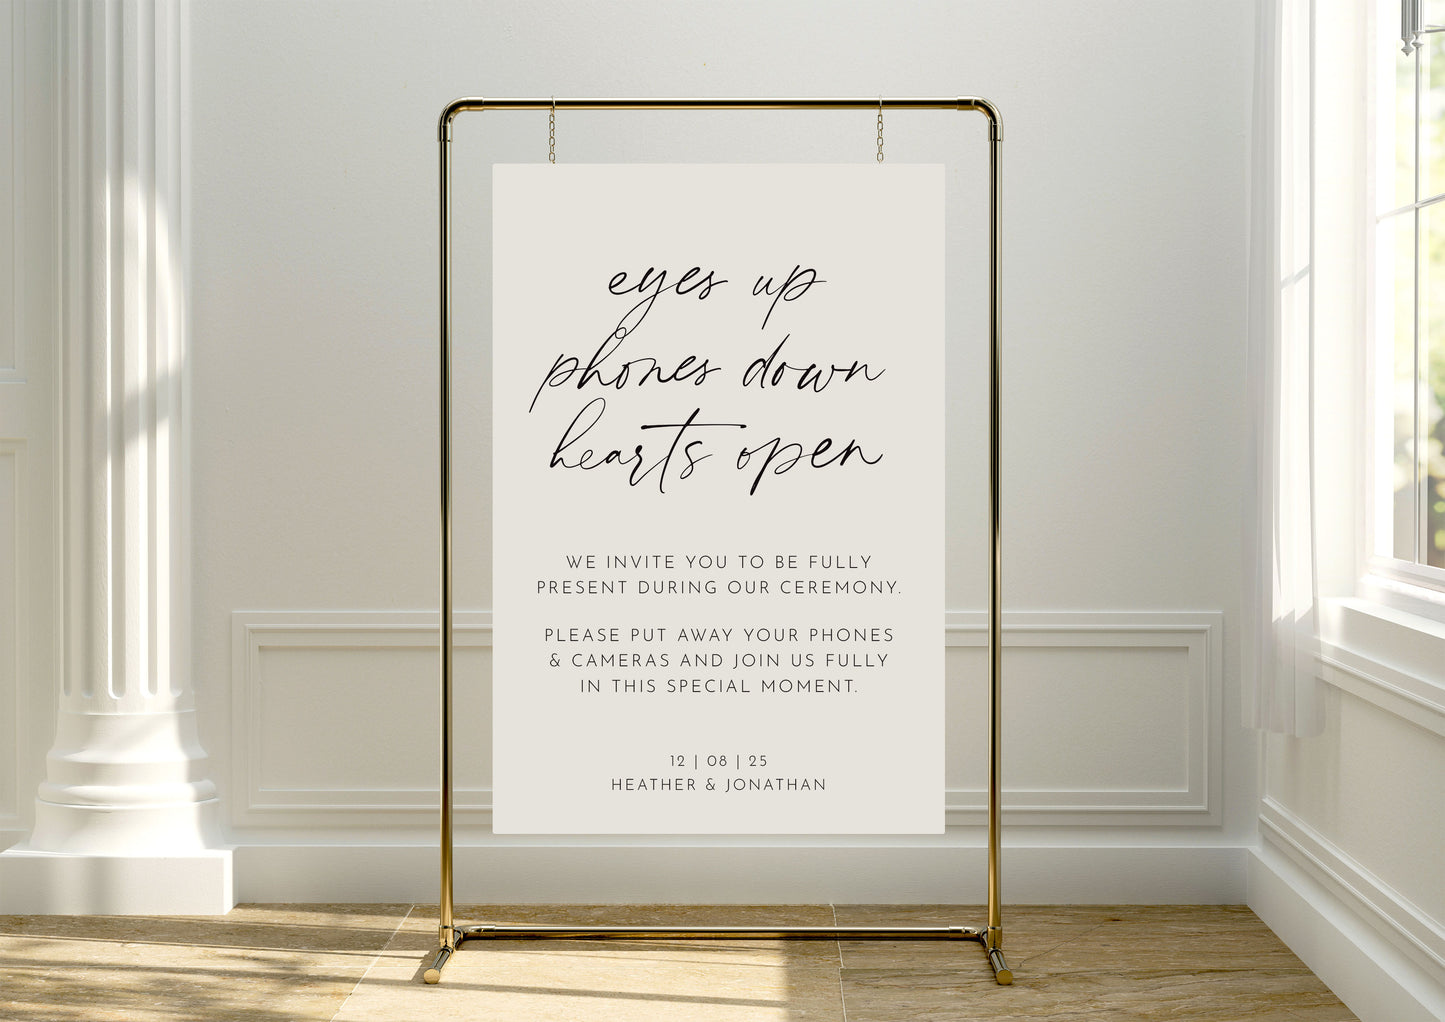 eyes up
phones down
hearts open
WE INVITE YOU TO BE FULLY
PRESENT DURING OUR CEREMONY.
PLEASE PUT AWAY YOUR PHONES
& CAMERAS AND JOIN US FULLY
IN THIS SPECIAL MOMENT.
12 | 08 | 25
HEATHER & JONATHAN